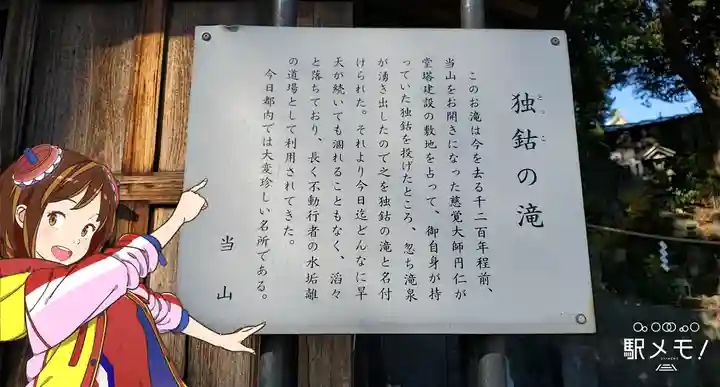 独鈷の滝
とっこ
このお滝は今を去る千二百年程前、
当山をお開きになった慈覚大師円仁が
堂塔建設の敷地を占って、御自身が持
っていた独鈷を投げたところ、忽ち滝泉
が湧き出したので之を独鈷の滝と名付
けられた。それより今日迄どんなに早
天が続いても涸れることもなく、滔々
と落ちており、長く不動行者の水垢離
の道場として利用されてきた。
今日都内では大変珍しい名所である。
当山
駅メモ!